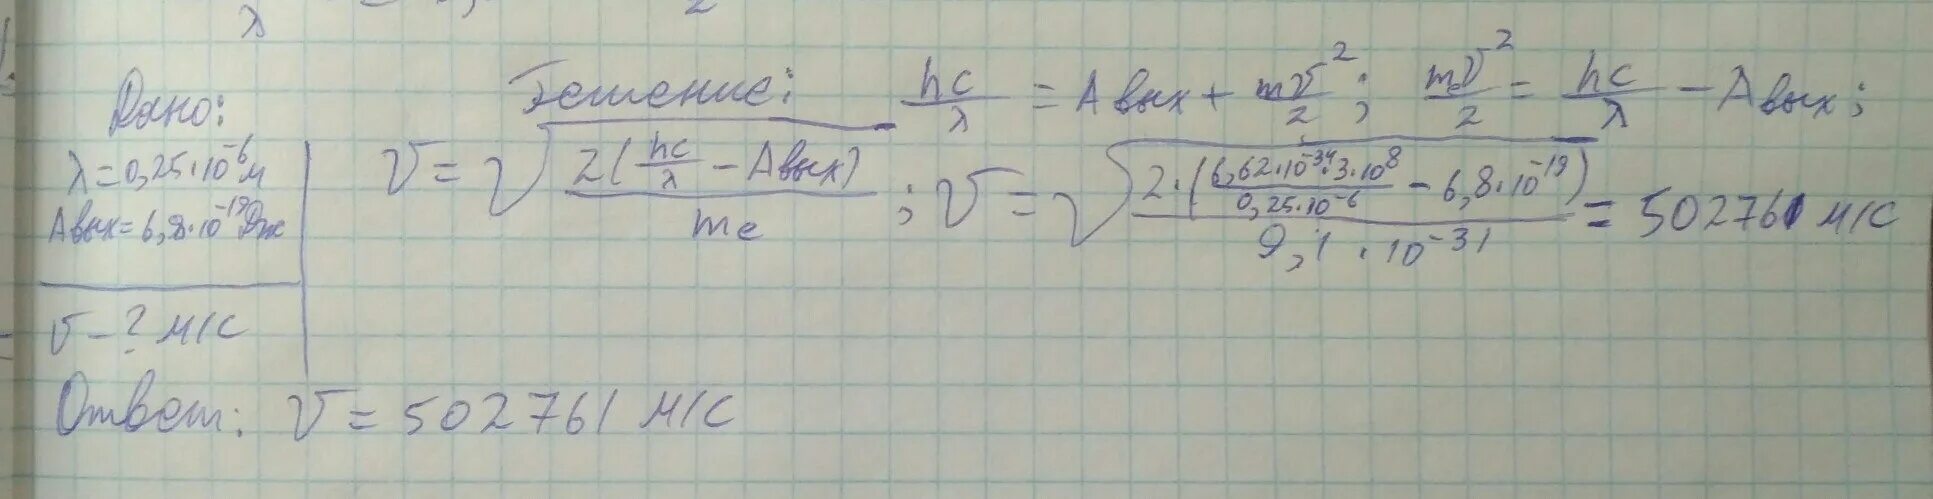 λ
2
Дано:
λ=0,25·10⁻⁶м
Aвых=6,8·10⁻¹⁹Дж
v-? м/с
Решение: hc/λ = Aвых + mv²/2; mv²/2 = hc/λ - Aвых;
v = √(2(hc/λ - Aвых)/me); v = √(2·(6,62·10⁻³⁴·3·10⁸/0,25·10⁻⁶ - 6,8·10⁻¹⁹)/9,1·10⁻³¹) = 502761 м/с
Ответ: v = 502761 м/с